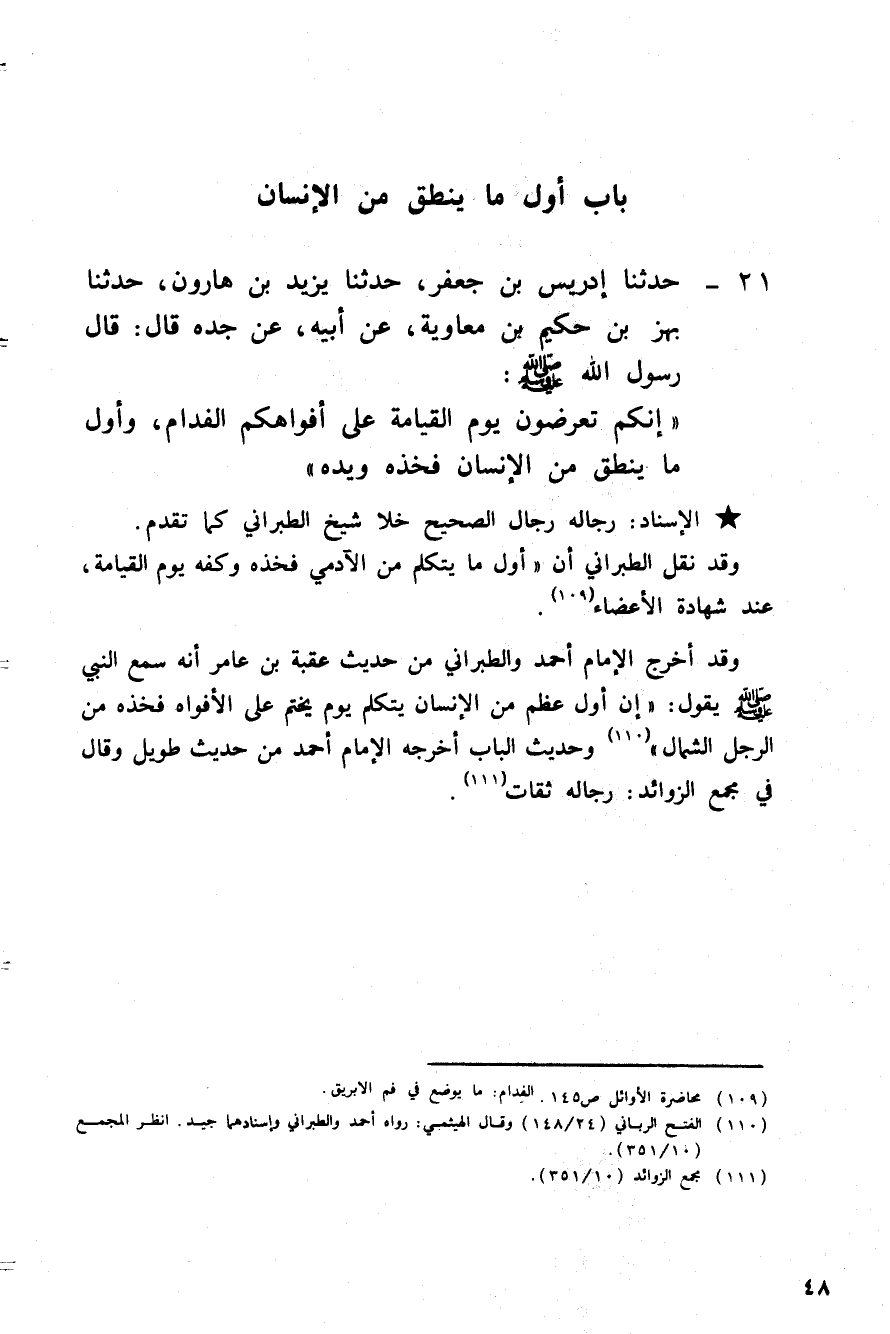 باب أول ما ينطق من الإنسان
٢١ - حدثنا إدريس بن جعفر، حدثنا يزيد بن هارون، حدثنا
بهز بن حكيم بن معاوية، عن أبيه، عن جده قال: قال
رسول الله ﷺ :
« إنكم تعرضون يوم القيامة على أفواهكم الفدام، وأول
ما ينطق من الإنسان فخذه ويده»
★ الإسناد: رجاله رجال الصحيح خلا شيخ الطبراني كما تقدم.
وقد نقل الطبراني أن « أول ما يتكلم من الآدمي فخذه وكفه يوم القيامة،
عند شهادة الأعضاء(١٠٩) .
وقد أخرج الإمام أحمد والطبراني من حديث عقبة بن عامر أنه سمع النبي
ﷺ يقول: « إن أول عظم من الإنسان يتكلم يوم يختم على الأفواه فخذه من
الرجل الشمال»(١١٠) وحديث الباب أخرجه الإمام أحمد من حديث طويل وقال
في مجمع الزوائد: رجاله ثقات(١١١) .
(١٠٩) محاضرة الأوائل ص١٤٥. الفدام: ما يوضع في فم الابريق.
(١١٠) الفتح الرباني (١٤٨/٢٤) وقال الهيثمي: رواه أحمد والطبراني وإسنادهما جيد. انظر المجمع
(٣٥١/١٠).
(١١١) مجمع الزوائد (٣٥١/١٠).
٤٨